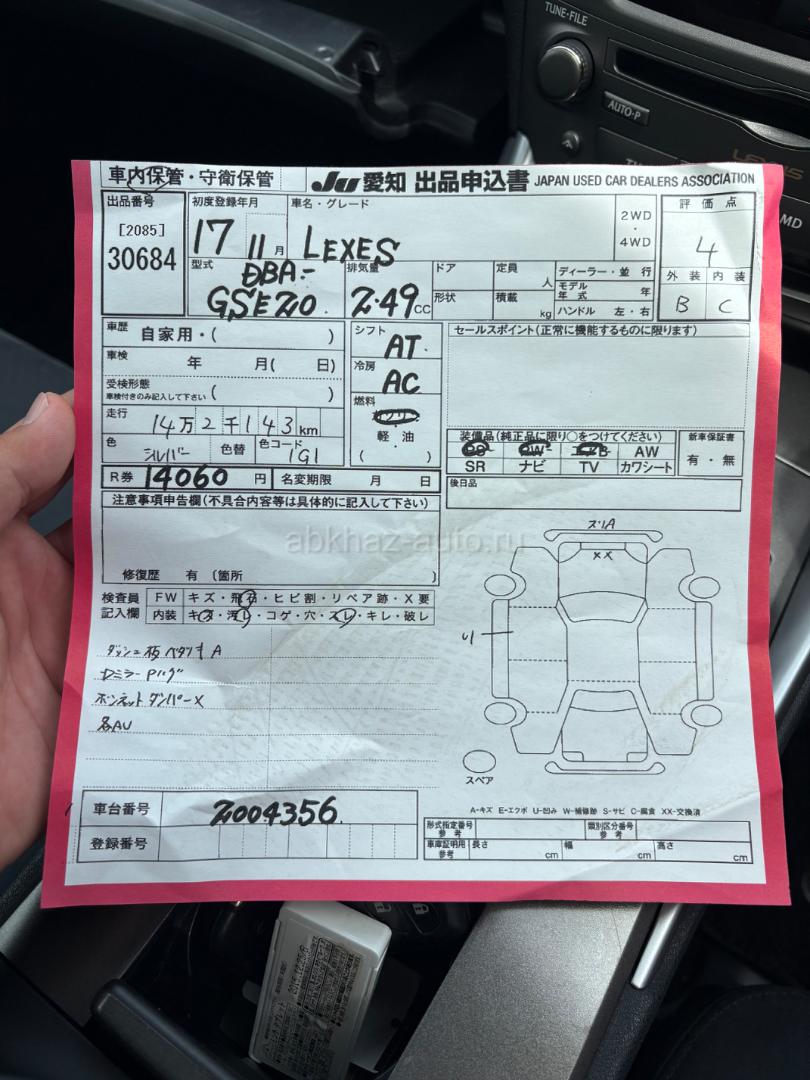 TUNE·FILE
AUTO·P
LEXUS
MD
車内保管・守衛保管
JU 愛知 出品申込書 JAPAN USED CAR DEALERS ASSOCIATION
出品番号
[2085]
30684
初度登録年月
17 11 月
車名・グレード
LEXES
2WD
・
4WD
評価点
4
外装 内装
B C
型式
DBA-
GSE20.
排気量
2.49 CC
ドア
定員
人
形状
積載
kg
ディーラー・並行
モデル年式 年
ハンドル 左・右
車歴 自家用・( )
車検 年 月( 日)
受検形態
車検付きのみ記入して下さい ( )
走行 14万2千143km
色 シルバー 色替 色コード 1G1
シフト
AT.
冷房
AC
燃料
ガソリン
軽・油
( )
セールスポイント(正常に機能するものに限ります)
装備品(純正品に限り○をつけてください)
PS PW エアB AW
SR ナビ TV カワシート
新車保証書
有・無
R券 14060 円 名変期限 月 日
後日品
注意事項申告欄(不具合内容等は具体的に記入して下さい)
修復歴 有 〔箇所 〕
検査員
記入欄
FW キズ・飛石・ヒビ割・リペア跡・X要
内装 キズ・汚れ・コゲ・穴・スレ・キレ・破レ
ダッシュ板ベタツキA
ボンネットダンパーX
各AU
スリA
XX
U
スペア
A-キズ E-エクボ U-凹み W-補修跡 S-サビ C-腐食 XX-交換済
車台番号 2004356.
登録番号
形式指定番号
参考
類別区分番号
参考
車庫証明用
参考
長さ cm 幅 cm 高さ cm
abkhaz-auto.ru